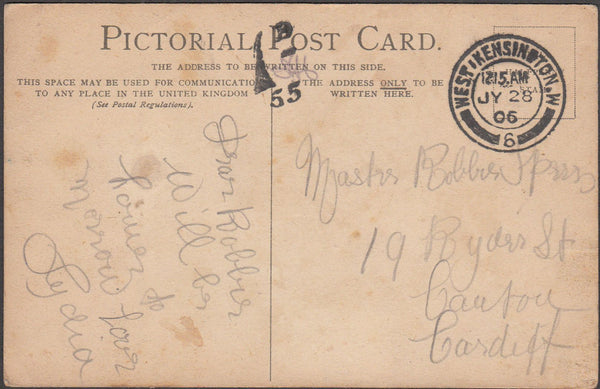 PICTORIAL POST CARD.
THE ADDRESS TO BE WRITTEN ON THIS SIDE.
THIS SPACE MAY BE USED FOR COMMUNICATION
TO ANY PLACE IN THE UNITED KINGDOM
(See Postal Regulations).
THE ADDRESS ONLY TO BE
WRITTEN HERE.
1D
55
WEST KENSINGTON.W
12.15.AM
JY 28
06
6
Dear Robbie
Will be
home to
morrow love
Lydia
Master Robbie
19 Ryder St
Canton
Cardiff